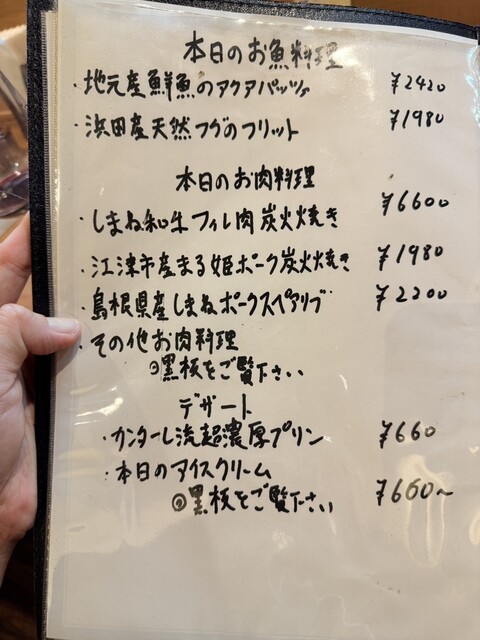 本日のお魚料理
・地元産鮮魚のアクアパッツァ ¥2420
・浜田産天然フグのフリット ¥1980
本日のお肉料理
・しまね和牛フィレ肉炭火焼き ¥6600
・江津市産まる姫ポーク炭火焼き ¥1980
・島根県産しまねポークスペアリブ ¥2200
・その他お肉料理
黒板をご覧下さい
デザート
・カンターレ流超濃厚プリン ¥660
・本日のアイスクリーム
黒板をご覧下さい ¥660～